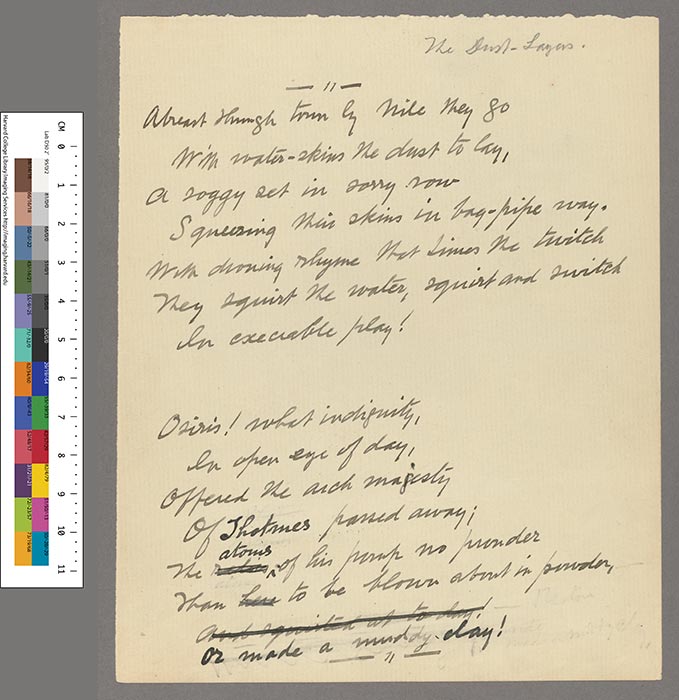 The Dust-Layers.
— " —
Abreast through town by Nile they go
With water-skins the dust to lay,
A soggy set in sorry row
Squeezing their skins in bag-pipe way.
With droning rhyme that times the twitch
They squirt the water, squirt and switch
In execrable play!
Osiris! what indignity,
In open eye of day,
Offered the arch majesty
Of Thotmes passed away;
atoms
The of his pomp no prouder
Than here to be blown about in powder,
And squirted at to day!
Or made a muddy clay!
— " —
CM 0 1 2 3 4 5 6 7 8 9 10 11
Harvard College Library Imaging Services http://imaging.harvard.edu